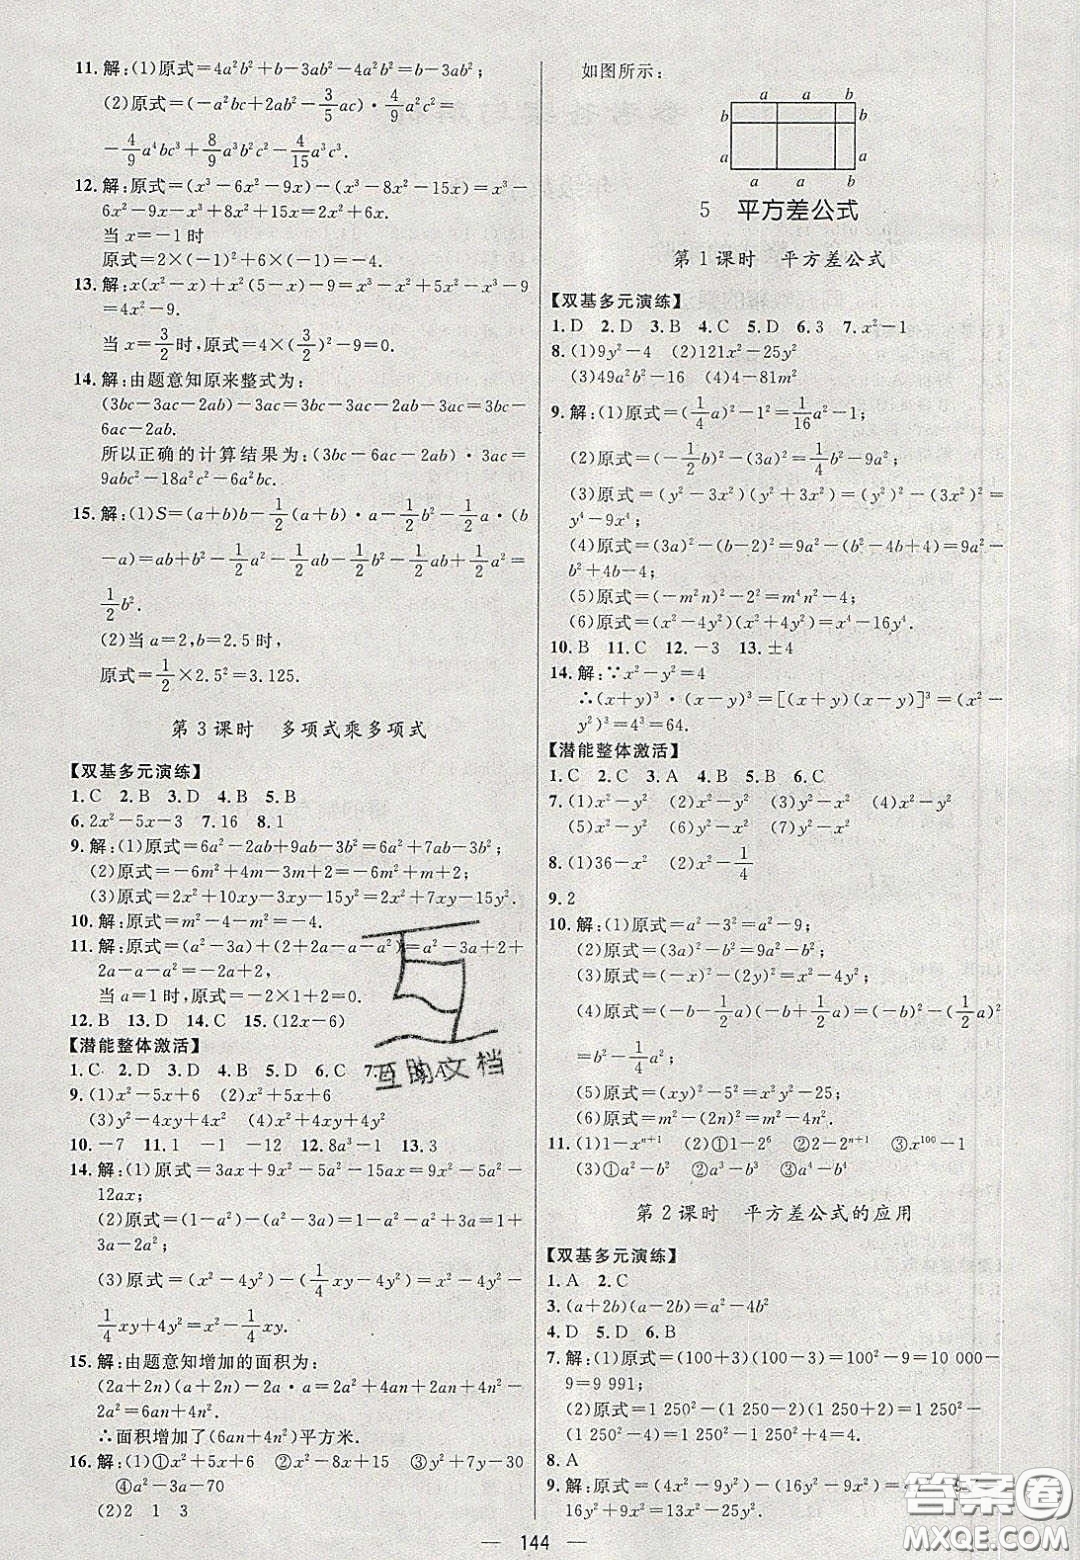 11. 解:(1)原式=4a²b²+b-3ab²-4a²b=ab²;
(2)原式=(-a²bc+2ab²-3/5ac)·4/9a²c²=
-4/9a⁴bc³+8/9a³b²c²-4/15a³c³.
12. 解:原式=(x³-6x²-9x)-(x³-8x²-15x)+2x³-
6x²-9-x-x³+8x²+15x=2x²+6x.
当 x=-1 时
原式=2×(-1)²+6×(-1)=-4.
13. 解:x(x²-x)+x²(5-x)-9=x³-x²+5x²-x³-9=
4x²-9.
当 x=3/2时,原式=4×(3/2)²-9=0.
14. 解:由题意知原来整式为:
(3bc-3ac-2ab)-3ac=3bc-3ac-2ab-3ac=3bc-
6ac-2ab.
所以正确的计算结果为:(3bc-6ac-2ab)·3ac=
9abc²-18a²c²-6a²bc.
15. 解:(1)S=(a+b)b-1/2(a+b)·a-1/2b²-1/2a·(b
-a)=ab+b²-1/2a²-1/2ab-1/2b²-1/2ab+1/2a²=
1/2b².
(2)当 a=2,b=2.5 时,
原式=1/2×2.5²=3.125.
第 3 课时 多项式乘多项式
【双基多元演练】
1. C 2. B 3. D 4. B 5. B
6. 2x²-5x-3 7. 16 8. 1
9. 解:(1)原式=6a²-2ab+9ab-3b²=6a²+7ab-3b²;
(2)原式=-6m²+4m-3m+2=-6m²+m+2;
(3)原式=2x²+10xy-3xy-15y²=2x²+7xy-15y².
10. 解:原式=m²-4-m²=-4.
11. 解:原式=(a²-3a)+(2+2a-a-a²)=a²-3a+2+
2a-a-a²=-2a+2,
当 a=1 时,原式=-2×1+2=0.
12. B 13. D 14. C 15. (12x-6)
【潜能整体激活】
1. C 2. C 3. B 4. B 5. C 6. B 7. A 8. A
9. (1)x²-5x+6 (2)x²+5x+6
(3)y²-4xy+4x² (4)x²+4xy+4y²
10. -7 11. 1 -1 -12 12. 8a³-1 13. 3
14. 解:(1)原式=3ax+9x²-5a²-15ax=9x²-5a²-
12ax;
(2)原式=(1-a²)-(a²-3a)=1-a²-a²+3a=1+
3a-2a²;
(3)原式=(x²-4y²)-(1/4xy-4y²)=x²-4y²-
1/4xy+4y²=x²-1/4xy.
15. 解:由题意知增加的面积为:
(2a+2n)(a+2n)-2a·a=2a²+4an+2an+4n²-
2a²=6an+4n²
∴面积增加了(6an+4n²)平方米.
16. 解:(1)①x²+5x+6 ②x²+8x+15 ③y²+7y-30
④a²-3a-70
(2)2 1 3
如图所示:
a a b
b b
a a
a a b
5 平方差公式
第 1 课时 平方差公式
【双基多元演练】
1. D 2. D 3. B 4. C 5. D 6. 3 7. x²-1
8. (1)9y²-4 (2)121x²-25y²
(3)49a²b²-16 (4)4-81m²
9. 解:(1)原式=(1/4a)²-1²=1/16a²-1;
(2)原式=(-1/2b)²-(3a)²=1/4b²-9a²;
(3)原式=(y²-3x²)(y²+3x²)=(y²)²-(3x²)²=
y⁴-9x⁴;
(4)原式=(3a)²-(b-2)²=9a²-(b²-4b+4)=9a²-
b²+4b-4;
(5)原式=(-m²n)²-2²=m⁴n²-4;
(6)原式=(x²-4y²)(x²+4y²)=x⁴-16y⁴.
10. B 11. C 12. -3 13. ±4
14. 解:∵x²-y²=4
∴(x+y)³·(x-y)³=[(x+y)(x-y)]³=(x²-
y²)³=4³=64.
【潜能整体激活】
1. C 2. C 3. A 4. B 5. C 6. C
7. (1)x²-y² (2)x²-y² (3)y²-x² (4)x²-y²
(5)x²-y² (6)y²-x²
8. (1)36-x² (2)x²-1/4
9. 2
10. 解:(1)原式=a²-3²=a²-9;
(2)原式=(3a)²-b²=9a²-b²;
(3)原式=(-x)²-(2y)²=x²-4y²;
(4)原式=(-b-1/2a)(-b+1/2a)=(-b)²-(1/2a)²
=b²-1/4a²;
(5)原式=(xy)²-5²=x²y²-25;
(6)原式=m²-(2n)²=m²-4n².
11. (1)1-xⁿ⁺¹ (2)①1-2⁶ ②2-2ⁿ⁺¹ ③x¹⁰⁰-1
(3)①a²-b² ②a³-b³ ③a⁴-b⁴
第 2 课时 平方差公式的应用
【双基多元演练】
1. A 2. C
3. (a+2b)(a-2b)=a²-4b²
4. D 5. D 6. B
7. 解:(1)原式=(100+3)(100-3)=100²-9=10 000
-9=9 991;
(2)原式=1 250²-(1 250-2)(1 250+2)=1 250²-
(1 250²-4)=1 250²-1 250²+4=4.
8. A
16y²+9x²=13x²
144
答案圈
MXQE.COM
互助文档